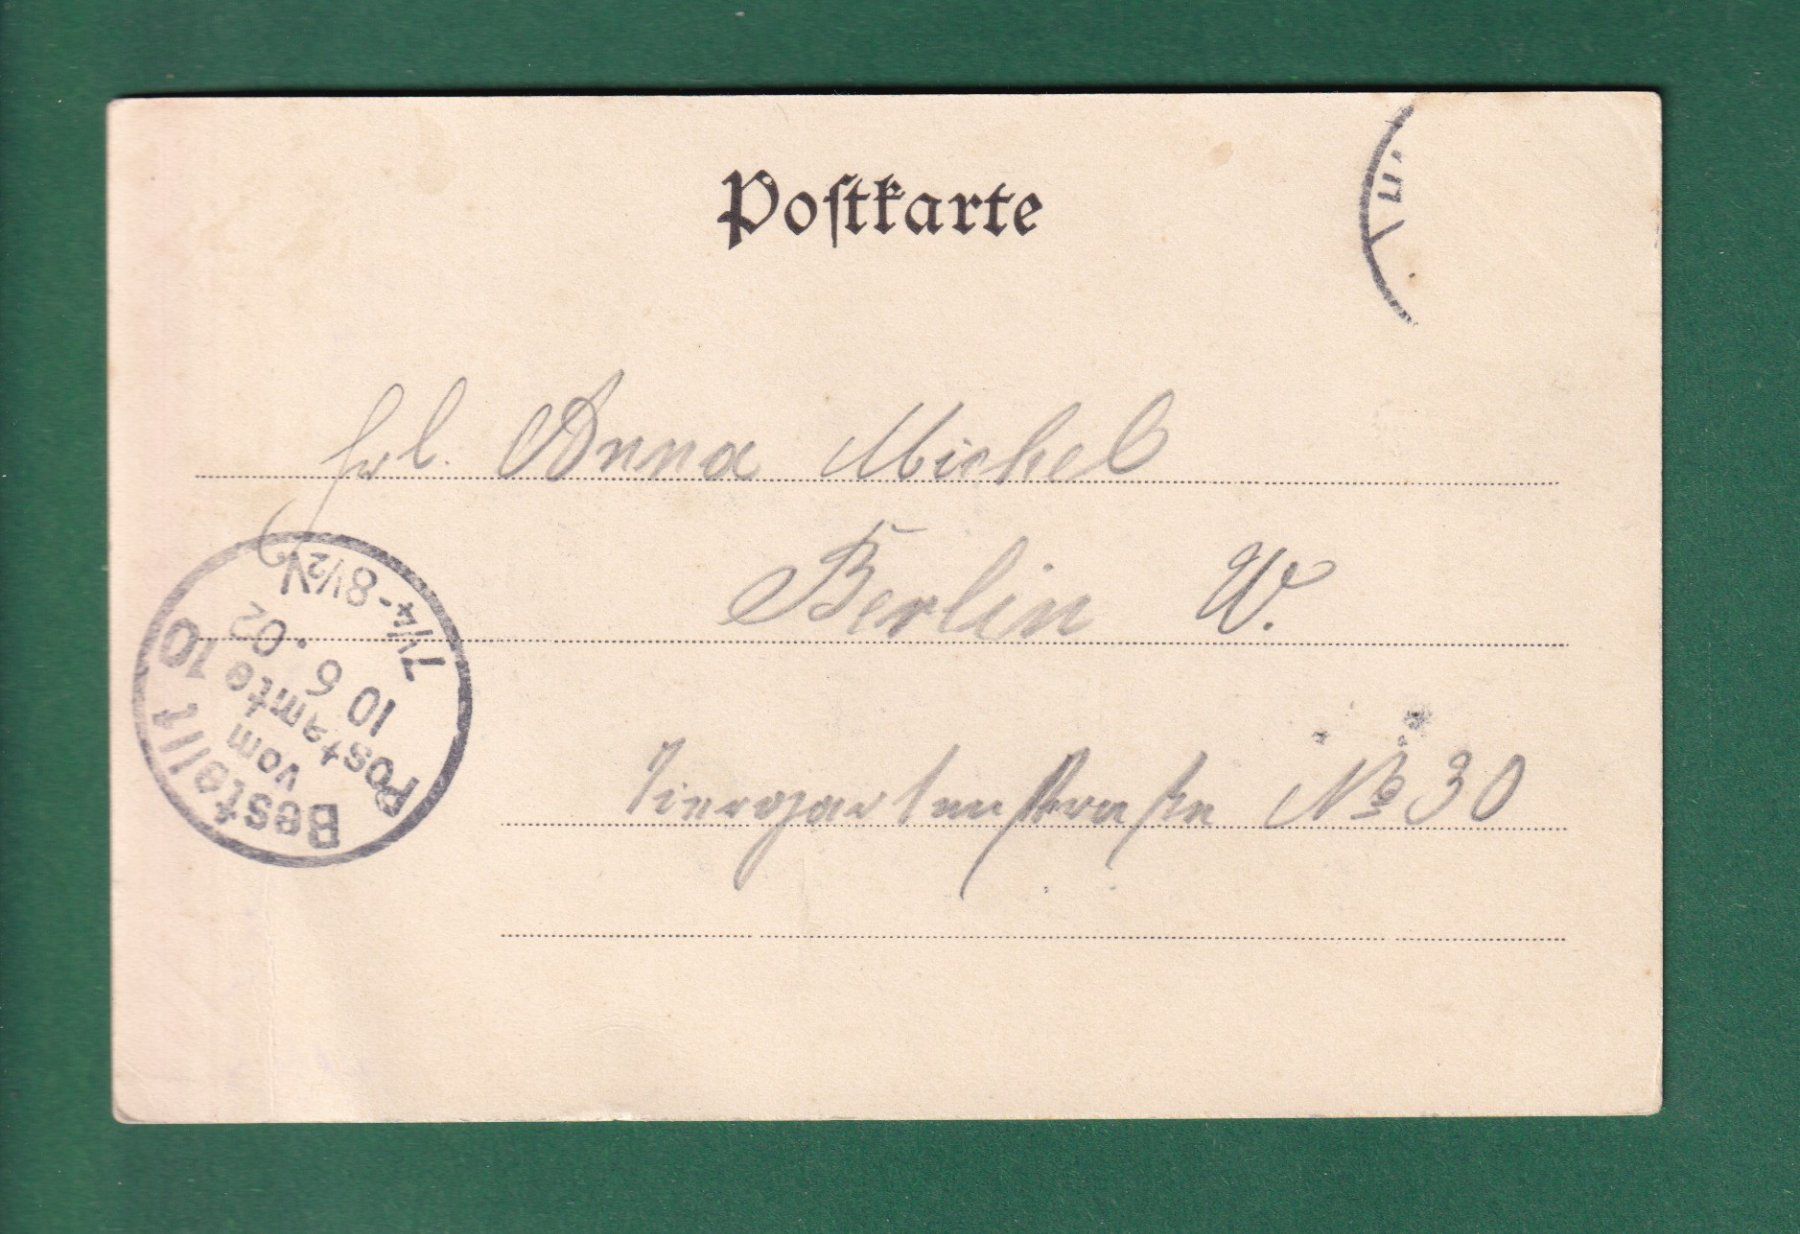 Postkarte
Frl. Anna Michel
Berlin W.
Tiergartenstraße No 30
Bestellt
vom
Postamte 10
10 6 . 02
7¼-8½N